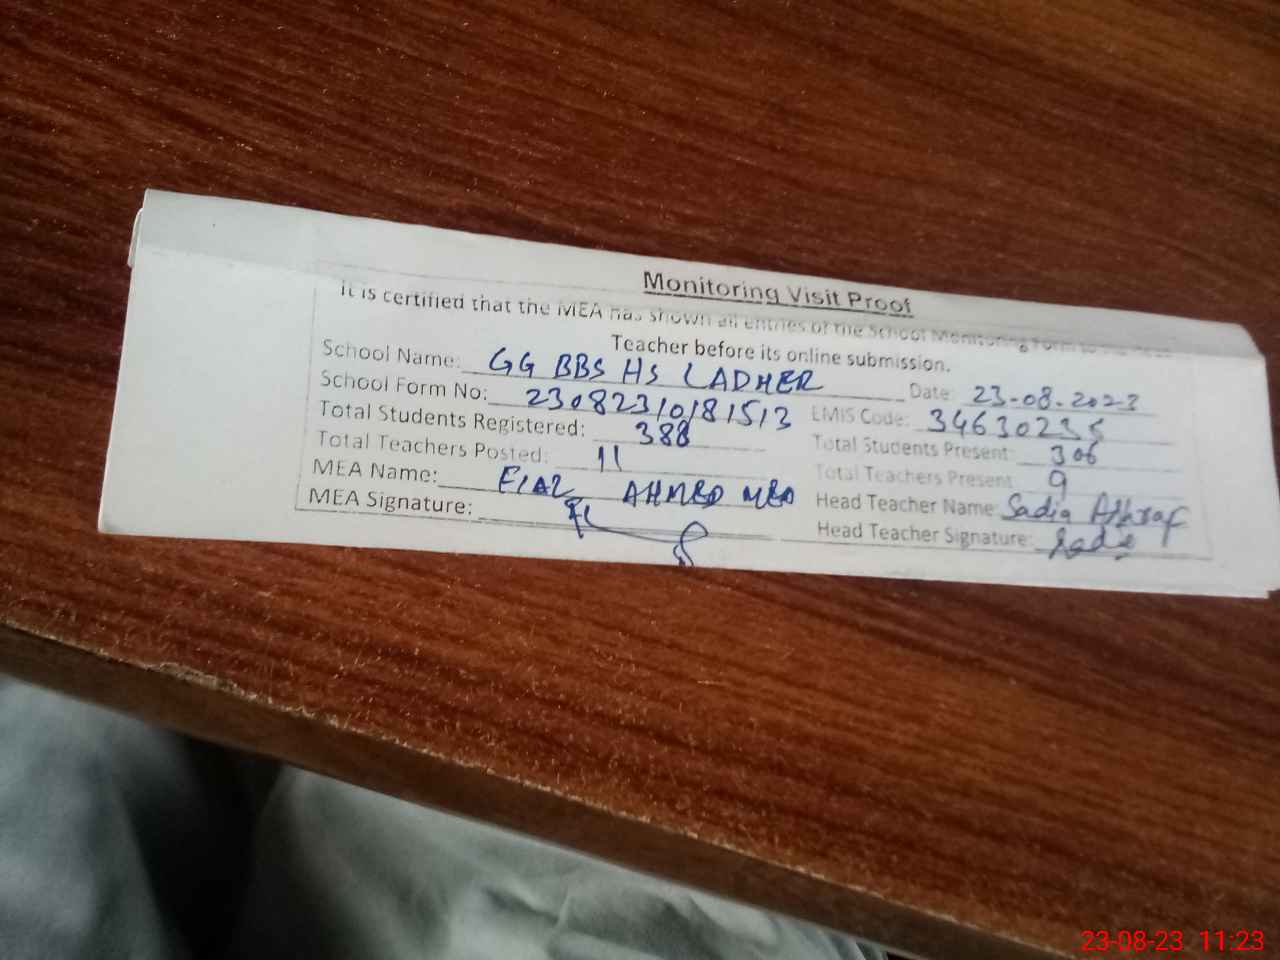 Monitoring Visit Proof
It is certified that the MEA has shown all entries of the School Monitoring Form to
Teacher before its online submission.
School Name: GG BBS HS LADHER Date: 23-08-2023
School Form No: 23082310181513 EMIS Code: 34630235
Total Students Registered: 388 Total Students Present: 306
Total Teachers Posted: 11 Total Teachers Present 9
MEA Name: EJAZ AHMED MEA Head Teacher Name: Sadia Ashraf
MEA Signature: Head Teacher Signature: Sadia
23-08-23 11:23